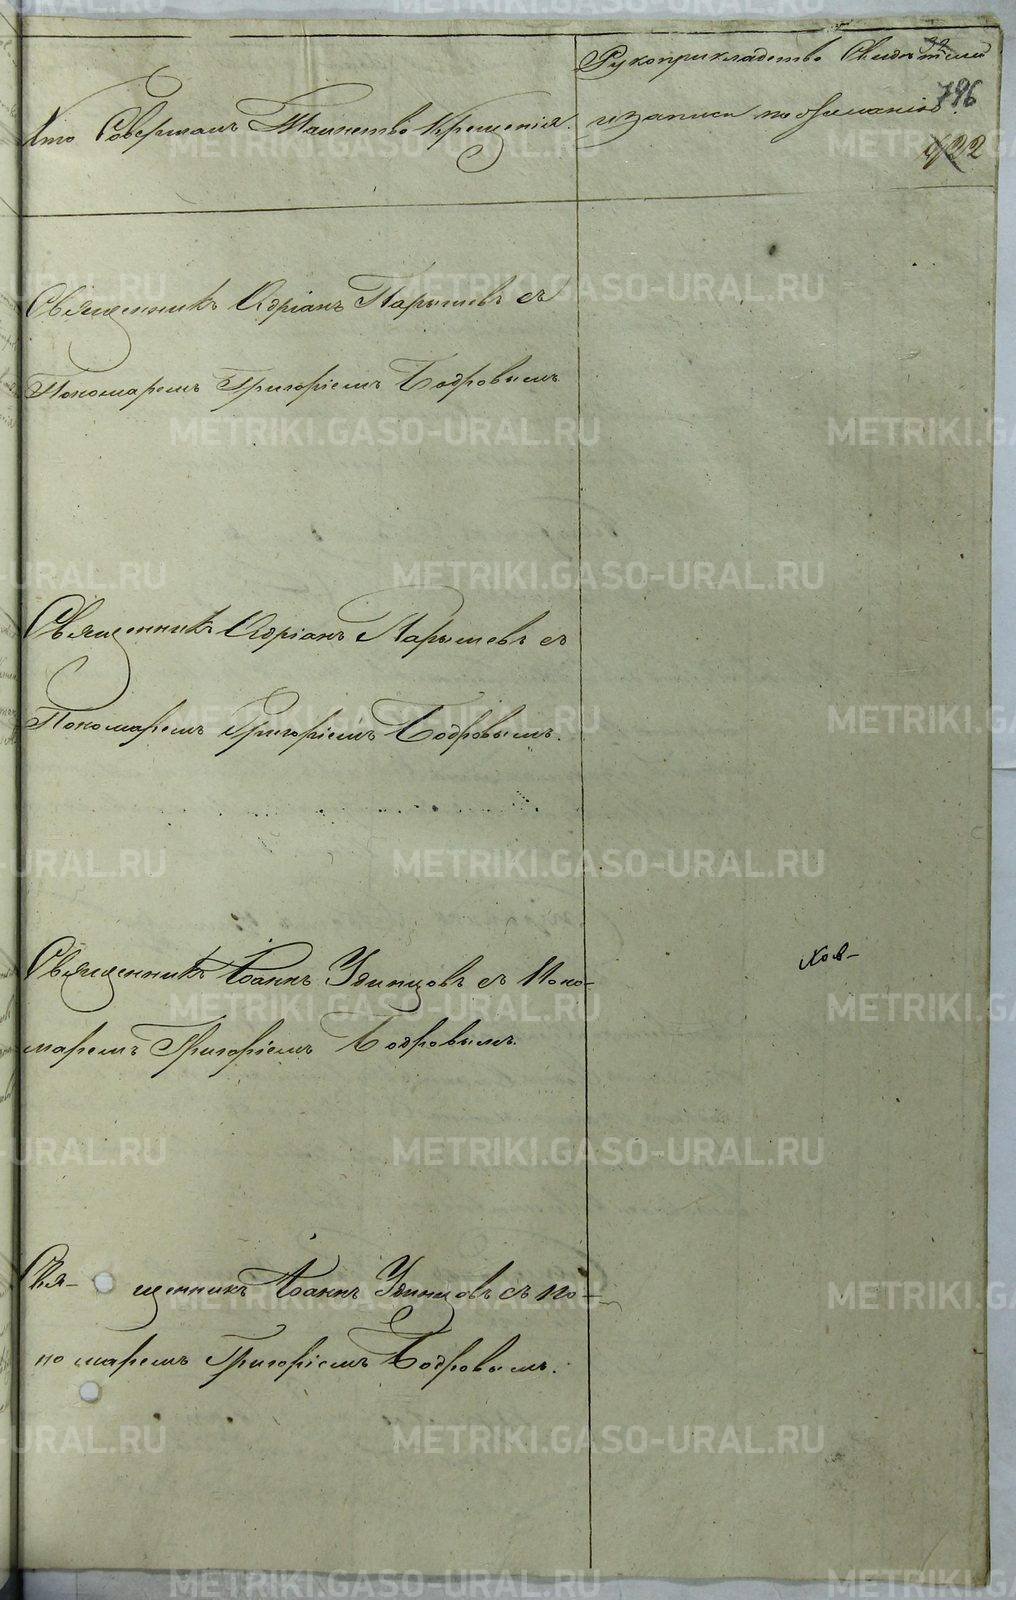 Кто Совершалъ Таинство Крещенія.
Рукоприкладство Свидѣтелей
и записи по желанію.
796
932
Священникъ Адріанъ Парышевъ съ
Пономаремъ Григоріемъ Бодровымъ
Священникъ Адріанъ Парышевъ съ
Пономаремъ Григоріемъ Бодровымъ.
Священникъ Іоаннъ Удинцовъ съ Поно-
маремъ Григоріемъ Бодровымъ.
Свя- щенникъ Іоаннъ Удинцовъ съ По-
номаремъ Григоріемъ Бодровымъ.
METRIKI.GASO-URAL.RU